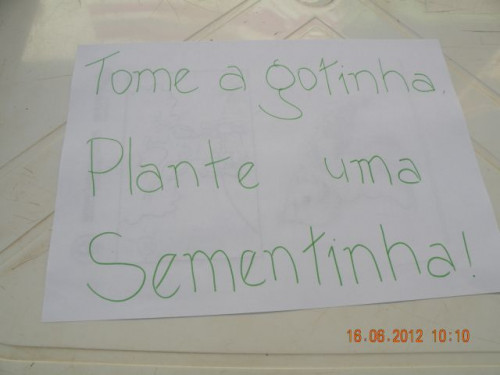 Tome a gotinha.
Plante uma
Sementinha!
16.06.2012 10:10